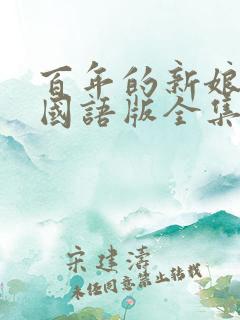 百年的新娘
國語版全集
宋建濤
未经同意禁止转载